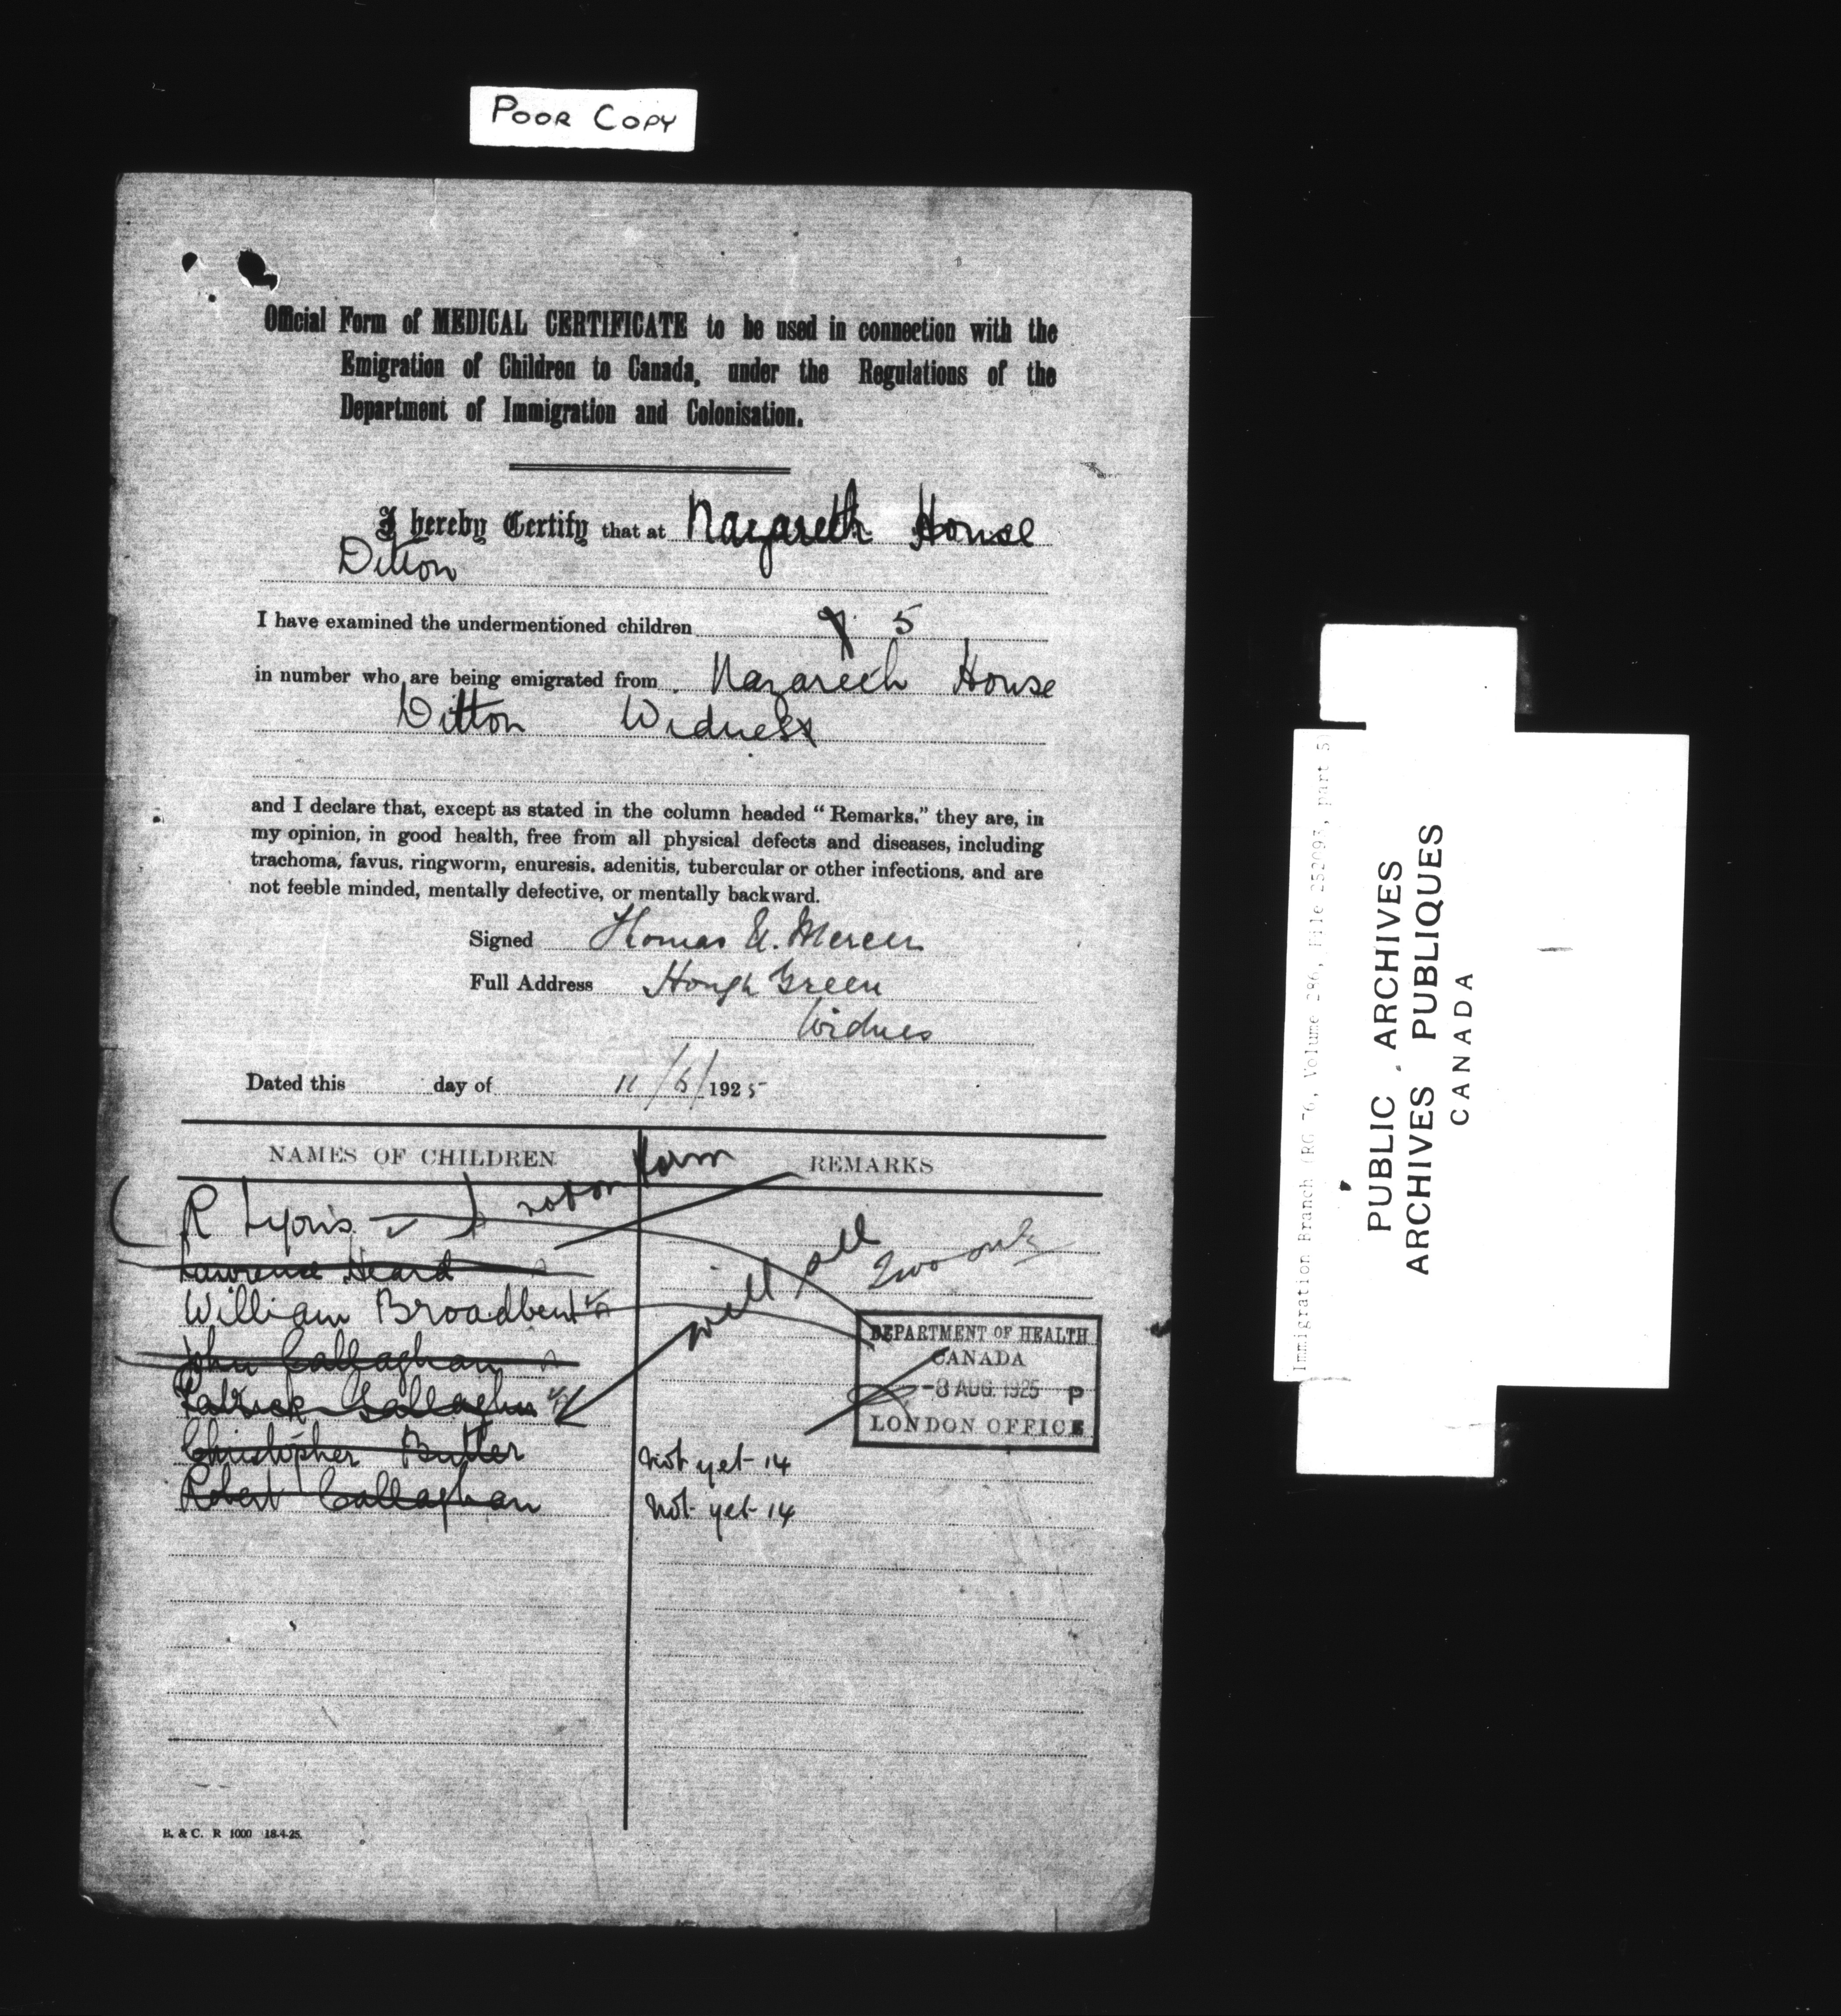 POOR COPY
Official Form of MEDICAL CERTIFICATE to be used in connection with the
Emigration of Children to Canada, under the Regulations of the
Department of Immigration and Colonisation.
I hereby Certify that at Nazareth House
Ditton
I have examined the undermentioned children 5
in number who are being emigrated from Nazareth House
Ditton Widness
and I declare that, except as stated in the column headed "Remarks," they are, in
my opinion, in good health, free from all physical defects and diseases, including
trachoma, favus, ringworm, enuresis, adenitis, tubercular or other infections, and are
not feeble minded, mentally defective, or mentally backward.
Signed Thomas Mercer
Full Address Hough Green
Widnes
Dated this day of 11/6/1925
NAMES OF CHILDREN REMARKS
not on form
R Lyons
Lawrence Heard
William Broadbent
John Callaghan
Patrick Gallagher
Christopher Butler not yet 14
Robert Callaghan not yet 14
Two only
DEPARTMENT OF HEALTH
CANADA
-8 AUG. 1925 P
LONDON OFFICE
H. & C. R 1000 18-4-25.
Immigration Branch (RG 76, Volume 286, File 252093, part 5)
PUBLIC ARCHIVES
ARCHIVES PUBLIQUES
CANADA